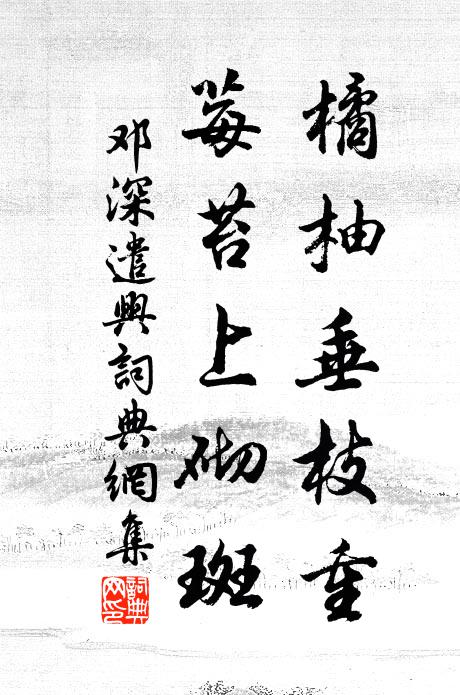 橘柚垂枝重
莓苔上砌斑
邓深遣興詞典網集
詞典網印